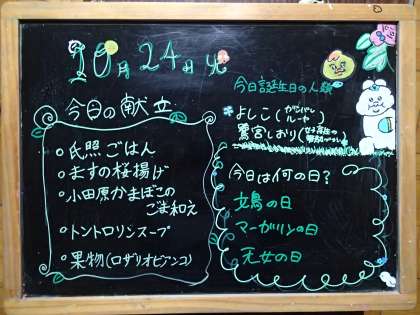 10月24日火
今日の献立
○氏照ごはん
○ますの桜揚げ
○小田原かまぼこの
ごま和え
○トントロリンスープ
○果物(ロザリオビアンコ)
今日誕生日の人
よしこ(ガンバレルーヤ)
鷺宮しおり(女子高生の
今日は何の日?
の日
マーガリンの日
天女の日